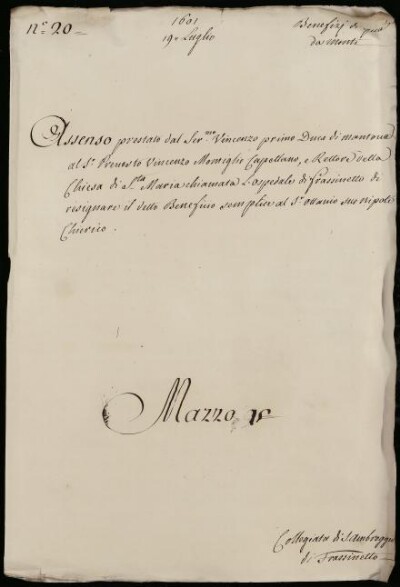 n.º 20
1601
19 Luglio
Benefizj di
da Monti
Assenso prestato dal Ser.mo Vincenzo primo Duca di mantova
al S.r Prevosto Vincenzo Montiglio Capellano, e Rettore della
Chiesa di S.ta Maria chiamata L'ospedale di Frassinetto di
resignare il detto Beneficio semplice al S.r Ottavio suo nipote
Chierico.
Mazzo 1º
Collegiata di S. Ambroggio
di Frassinetto